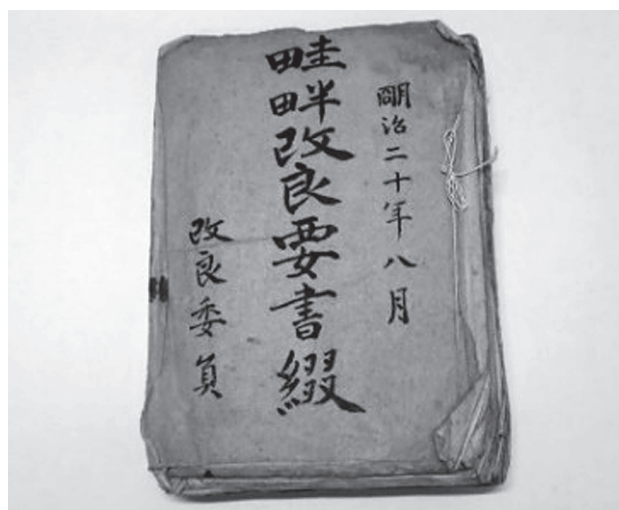 明治二十年八月
畦畔改良要書綴
改良委員